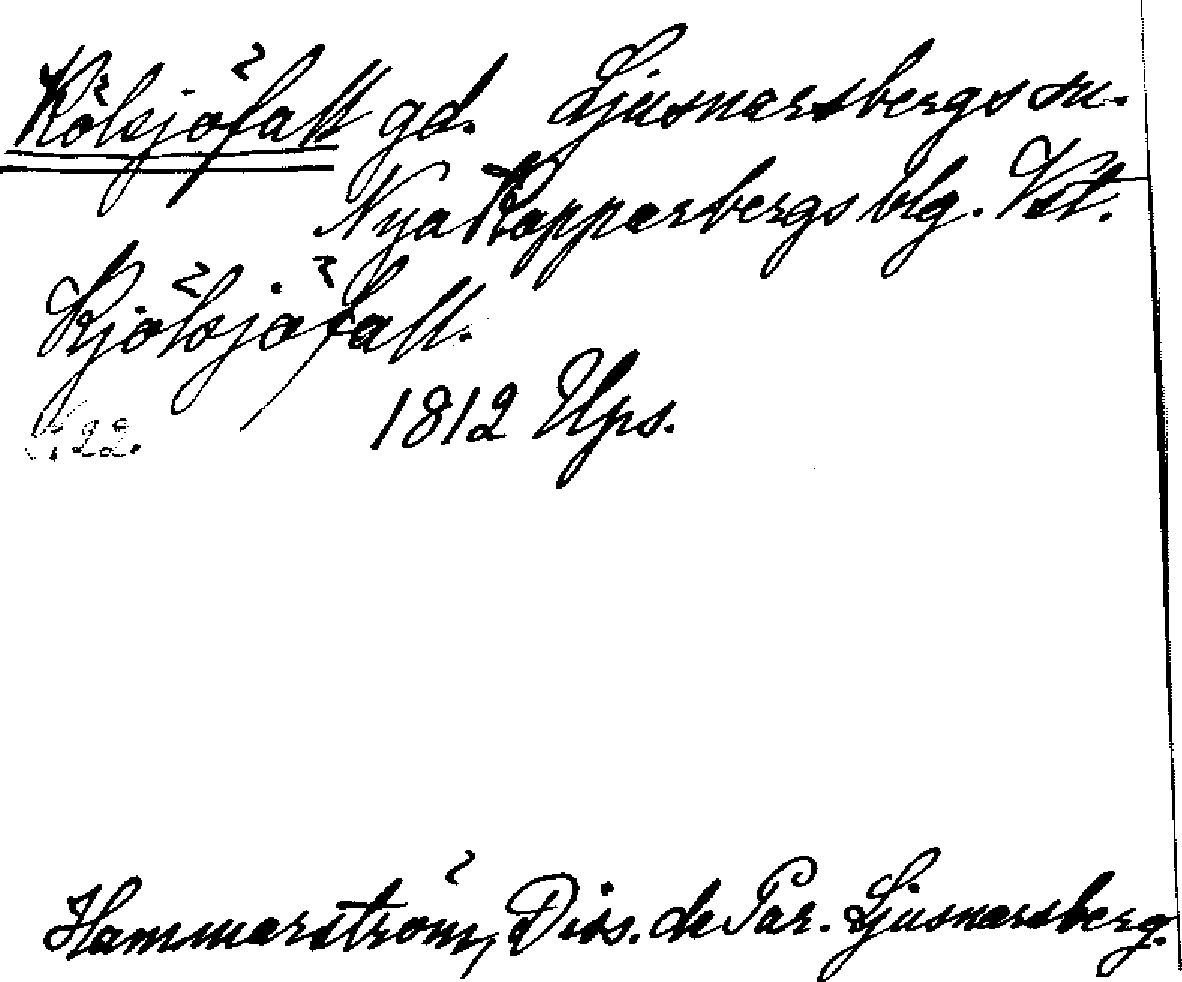 Kölsjöfall gd. Ljusnarsbergs sn.
Nya Kopparbergs blg. Vst.
Kjölsjöfall.
22. 1812 Ups.
Hammarström, Diss. de Par. Ljusnarsberg.